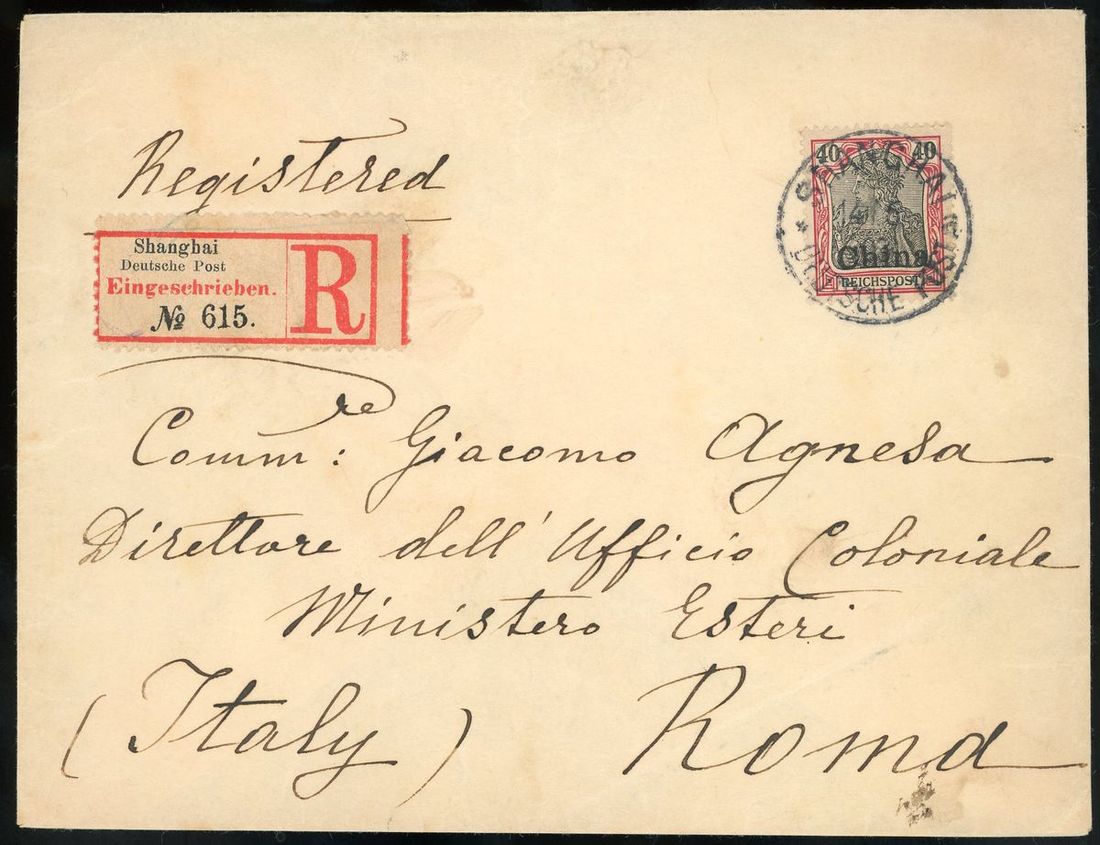 Registered
40 40
China
REICHSPOST
SHANGHAI
DEUTSCHE POST
Shanghai
Deutsche Post
Eingeschrieben.
№ 615.
R
Comm:re Giacomo Agnesa
Direttore dell' Ufficio Coloniale
Ministero Esteri
(Italy) Roma